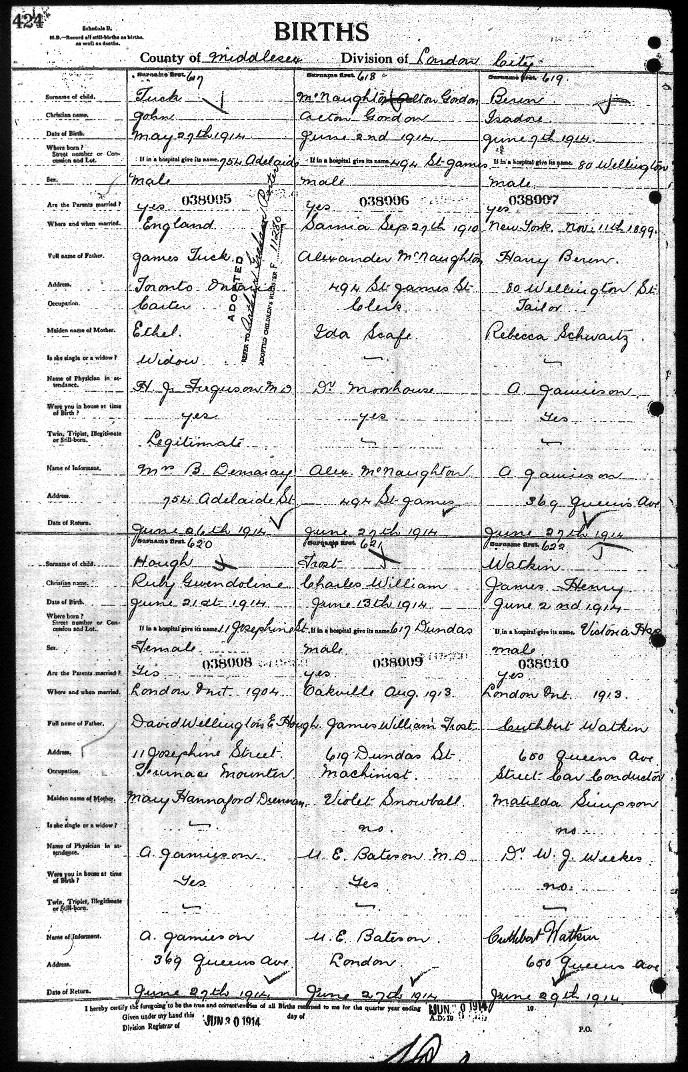 424
Schedule B.
N.B.—Record all still-births as births, as well as deaths.
BIRTHS
County of Middlesex Division of London City
Surname first. 617 Surname first. 618 Surname first. 619.
Surname of child. Tuck McNaughton Acton Gordon Beren
Christian name. John Acton Gordon Isadore
Date of Birth. May 27th 1914 June 2nd 1914 June 7th 1914.
Where born?
Street number or Concession and Lot. If in a hospital give its name. 754 Adelaide If in a hospital give its name. 494 St. James If in a hospital give its name. 80 Wellington
Sex. male male male.
038005 038006 038007
Are the Parents married? yes yes yes
Where and when married. England Sarnia Sep. 27th 1910 New York. Nov. 11th 1899.
Full name of Father. James Tuck. Alexander McNaughton Harry Beren.
Address. Toronto Ontario 494 St. James St. 80 Wellington St.
Occupation. Carter Clerk Tailor
Maiden name of Mother. Ethel. Ida Scafe Rebecca Schwartz
Is she single or a widow? Widow — —
Name of Physician in attendance. H. J. Ferguson M D Dr Moorhouse A Jamieson
Were you in house at time of Birth? yes. yes Yes.
Twin, Triplet, Illegitimate or Still-born. Legitimate — —
Name of Informant. Mrs B. Demaray Alex. McNaughton A Jamieson
Address. 754 Adelaide St. 494 St. James 369 Queens Ave
Date of Return. June 26th 1914 June 27th 1914 June 27th 1914
ADOPTED
REFER TO
ADOPTED CHILDREN'S REGISTER F 11280
Surname first. 620 Surname first. 621 Surname first. 622
Surname of child. Hough Frost Watkin
Christian name. Ruby Gwendoline Charles William James Henry
Date of Birth. June 21st 1914 June 13th 1914 June 2nd 1914
Where born?
Street number or Concession and Lot. If in a hospital give its name. 11 Josephine St. If in a hospital give its name. 617 Dundas If in a hospital give its name. Victoria Hos
Sex. Female male male
038008 038009 038010
Are the Parents married? Yes yes yes
Where and when married. London Ont. 1904 Oakville Aug. 1913. London Ont 1913.
Full name of Father. David Wellington E Hough. James William Frost Cuthbert Watkin
Address. 11 Josephine Street 619 Dundas St. 650 Queens Ave
Occupation. Furnace Mounter. Machinist. Street Car Conductor
Maiden name of Mother. Mary Hannaford Drennan. Violet Snowball. Matilda Simpson
Is she single or a widow? — no. no
Name of Physician in attendance. A. Jamieson. U. E. Bateson M. D Dr W. J. Weekes
Were you in house at time of Birth? Yes Yes. no.
Twin, Triplet, Illegitimate or Still-born. — — —
Name of Informant. A. Jamieson U. E. Bateson. Cuthbert Watkin
Address. 369 Queens Ave London 650 Queens Ave
Date of Return. June 27th 1914 June 27th 1914 June 29th 1914.
I hereby certify the foregoing to be the true and correct entries of all Births returned to me for the quarter year ending JUN 30 1914 19
Given under my hand this JUN 30 1914 day of A.D. 19
Division Registrar of P.O.